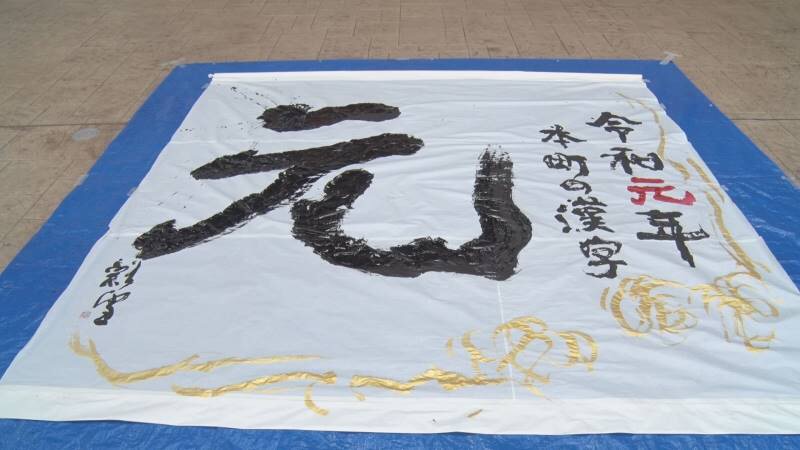 令和元年
本町の漢字
元
彩雪